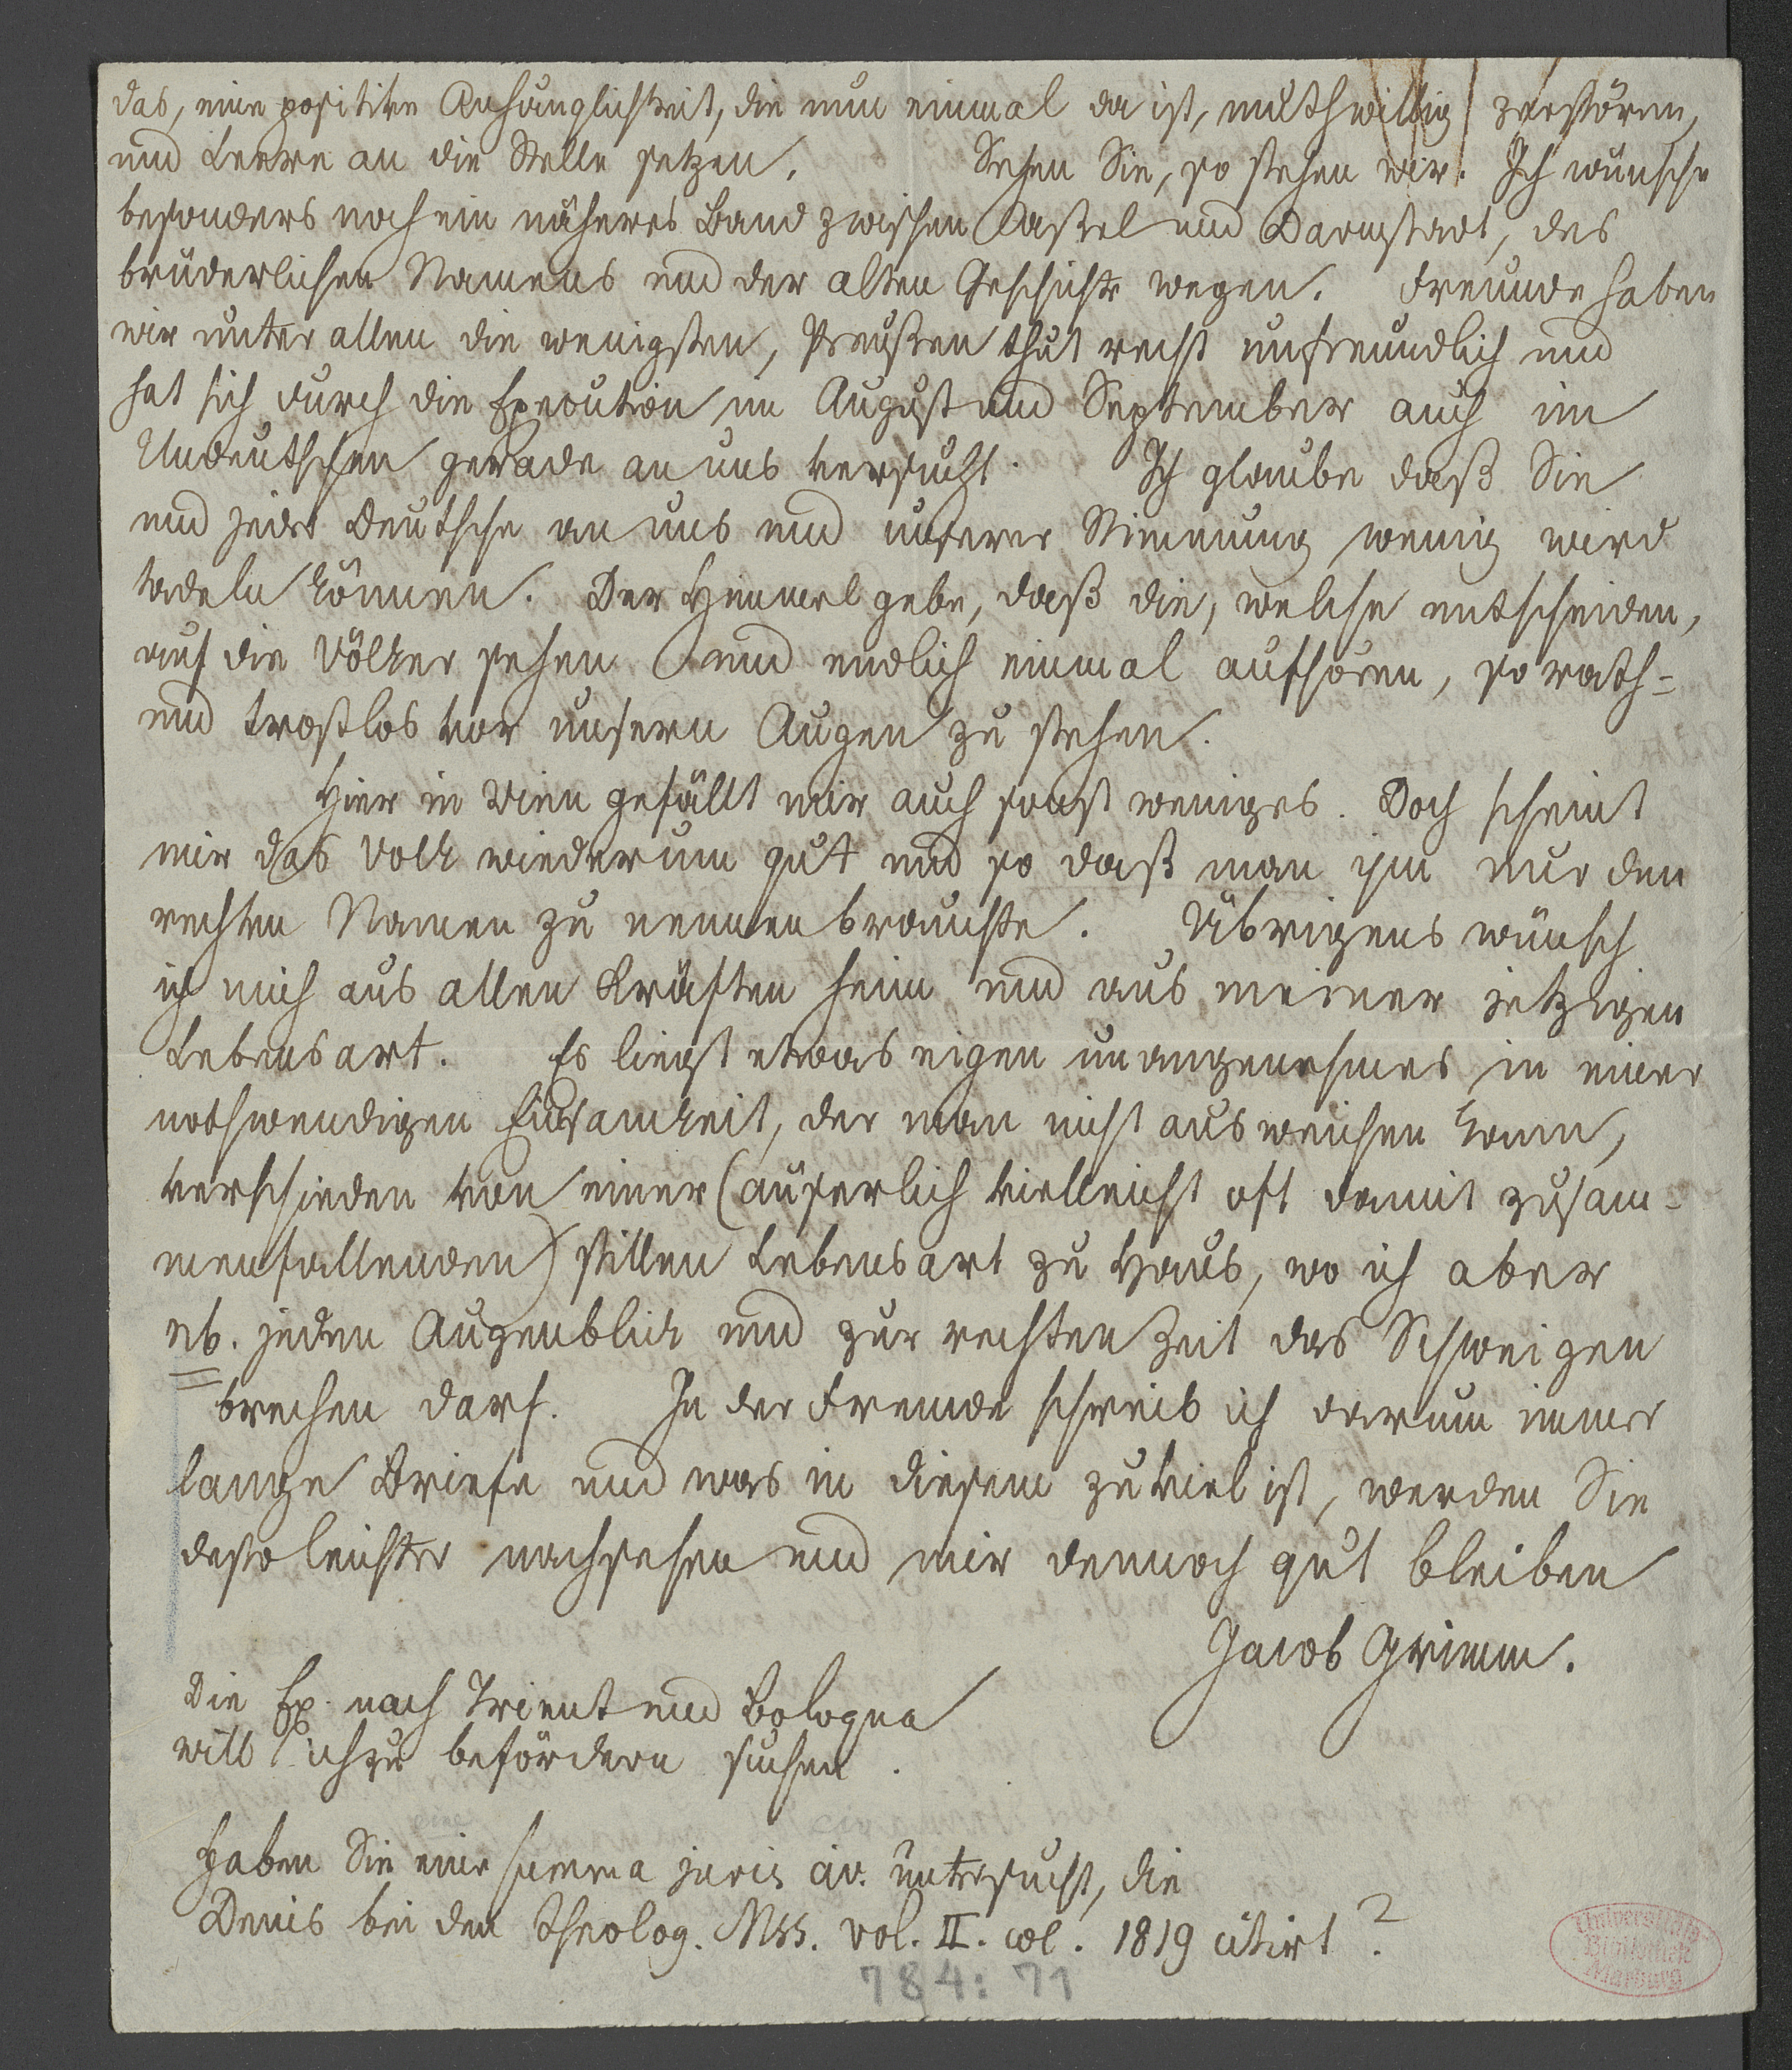 das, eine positive Anhänglichkeit, die nun einmal da ist, muthwillig zerstören,
und Leere an die Stelle setzen. Sehen Sie, so stehen wir. Ich wünsche
besonders noch ein näheres Band zwischen Cassel und Darmstadt, des
brüderlichen Namens und der alten Geschichte wegen. Freunde haben
wir unter allen die wenigsten, Preußen thut recht unfreundlich und
hat sich durch die Execution im August und September auch im
Undeutschen gerade an uns versucht. Ich glaube daß Sie
und jeder Deutsche an uns und unserer Stimmung wenig wird
tadeln können. Der Himmel gebe, daß die, welche entscheiden,
auf die Völker sehen und endlich einmal aufhören, so rath-
und trostlos vor unsern Augen zu stehen.
Hier in Wien gefällt mir auch sonst weniges. Doch scheint
mir das Volk wiederum gut und so daß man ihm nur den
rechten Namen zu nennen brauchte. Übrigens wünsch
ich mich aus allen Kräften heim und aus meiner jetzigen
Lebensart. Es liegt etwas eigen unangenehmes in einer
nothwendigen Einsamkeit, der man nicht ausweichen kann,
verschieden von einer (äuserlich vielleicht oft damit zusam-
menfallenden) stillen Lebensart zu Haus, wo ich aber
nb. jeden Augenblick und zur rechten Zeit das Schweigen
brechen darf. In der Fremde schreib ich darum immer
lange Briefe und was in diesem zuviel ist, werden Sie
desto leichter nachsehen und mir dennoch gut bleiben
Jacob Grimm.
Die Ex. nach Trient und Bologna
will ich zu befördern suchen.
Haben Sie eine summa juris civ. untersucht, die
Denis bei den theolog. Mss. vol. II. col. 1819 citirt?
784: 71
Universitäts
Bibliothek
Marburg